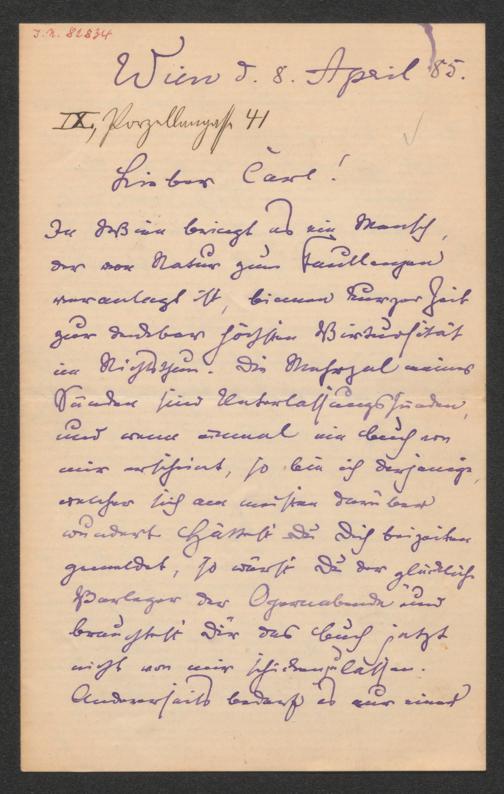 J.N. 82834
Wien d. 8. April 85.
IX, Porzellangasse 41
Lieber Carl!
In Wien bringt es ein Mensch,
der von Natur zum Faullenzen
veranlagt ist, binnen kurzer Zeit
zur denkbar höchsten Virtuosität
im Nichtsthun. Die Mehrzal meiner
Sünden sind Unterlassungssünden,
und wenn einmal ein Buch von
mir erscheint, so bin ich derjenige,
welcher sich am meisten darüber
wundert. Hättest Du Dich beizeiten
gemeldet, so wärst Du der glückliche
Verleger der Opernabende und
brauchtest Dir das Buch jetzt
nicht von mir schicken zu lassen.
Andererseits bedarf es nur eines